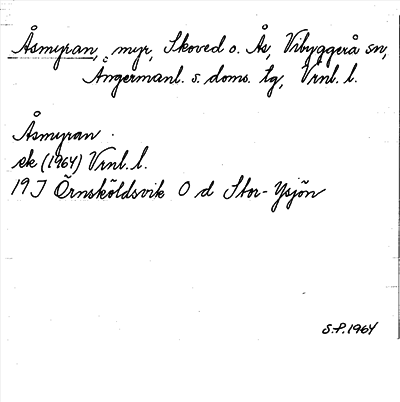 Åsmyran, myr, Skoved o. Ås, Vibyggerå sn,
Ångermanl. s. doms. tg, Vrnl. l.
Åsmyran.
ek (1964) Vrnl. l.
19 J Örnsköldsvik O d Stor-Ysjön
S.P. 1964